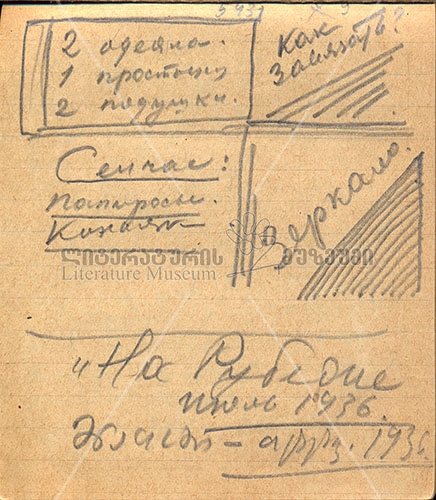 2 одеяла.
1 простыня
2 подушки.
Как
Завязать?
Сейчас:
папиросы.
Коньяк
Зеркало.
ლიტერატურის მუზეუმი
Literature Museum
"На Рубеже
июль 1936.
1936.